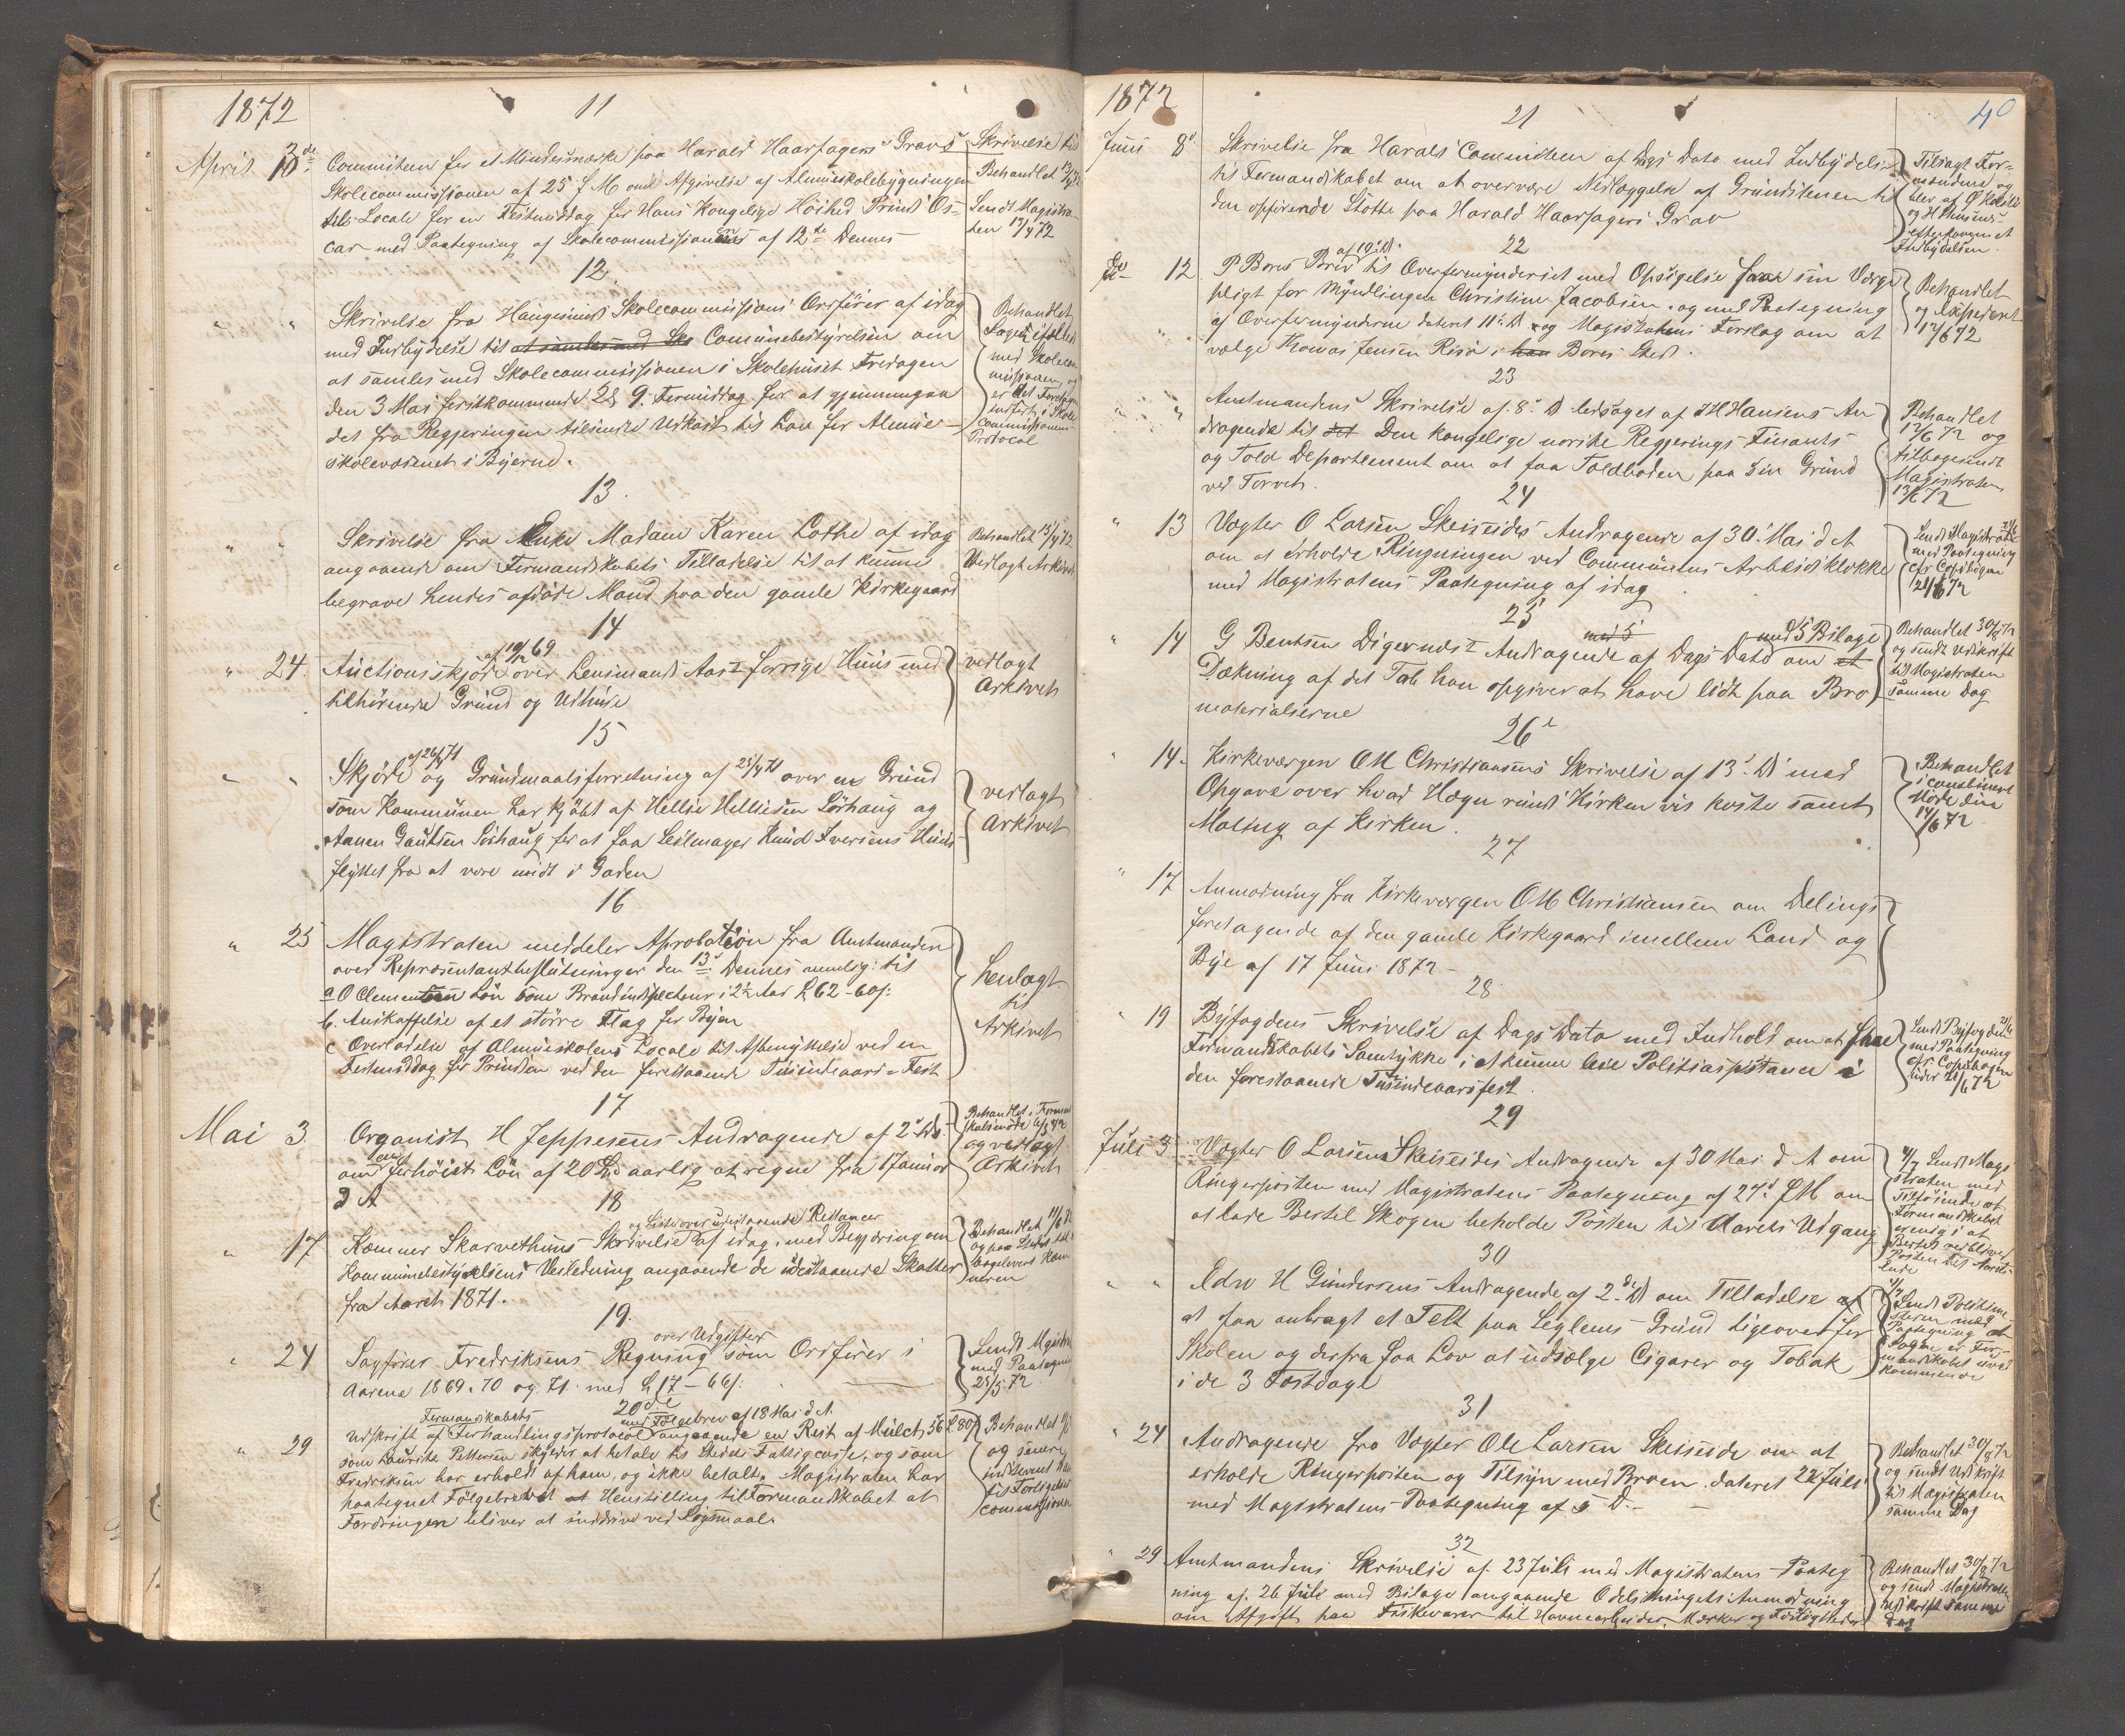 1872
11
April 13de Committeen for et Mindesmærke paa Harald Haarfagers Gravs Skrivelse til
Skolecommissionen af 25 f M om Afgivelse af Almueskolebygningen
dets Locale for en Festmiddag for Hans Kongelige Höihed Prinds Os-
car med Paategning af Skolecommissionen af 12te Dennes
Behandlet 13/4 72
Sendt Magistra
ten 13/4 72
12.
" " Skrivelse fra Haugesunds Skolecommissions Ordförer af idag
med Indbydelse til at samles med Sko Communebestyrelsen om
at samles med Skolecommissionen i Skolehuset Fredagen
den 3 Mai förstkommende Kl 9. Formiddag for at gjennemgaa
det fra Regjeringen tilsendte Udkast til Lov for Almue-
skolevæsenet i Byerne.
Behandlet
med Skolecom
missionen og
er det Foretagne
indfört i Skole
commissionens
Protocol
13.
" " Skrivelse fra Enke Madam Karen Lothe af idag
angaaende om Formandskabets Tilladelse til at kunne
begrave hendes afdöde Mand paa den gamle Kirkegaard
Behandlet 13/4 72
Vedlagt Arkivet
14
" 24. Auctionsskjöde af 19/12 69 over Lensmand Aars forrige Huus med
tilhörende Grund og Udhuse
vedlagt
Arkivet
15
" " Skjöde af 26/4 71 og Grundmaalsforretning af 25/4 71 over en Grund
som Kommunen har kjöbt af Hellie Helliesen Sörhaug og
Aanen Gautsen Sörhaug for at faa Seilmager Knud Iversens Huus
flyttet fra at være midt i Gaden
vedlagt
Arkivet
16
" 25 Magistraten meddeler Aprobation fra Amtmanden
over Repræsentantbeslutninger den 13de Dennes nemlig: til
a O Clementsen Lön som Brandinspecteur i 2½ Aar 62-60ß.
b. Anskaffelse af et större Flag for Byen
c Overladelse af Almueskolens Locale til Afbenyttelse ved en
Festmiddag for Prindsen ved den forestaaende Tusindaars-Fest
henlagt
til
Arkivet
17
Mai 3. Organist H Jeppesens Andragende af 2d Ds
om en forhöiet Lön af 20 Spd aarlig at regne fra 1 Januar
d A
Behandlet i Formand
skabsmöde 6/5 72
og vedlagt
Arkivet
18
" 17 Kæmner Skarvethuns Skrivelse og Liste over udestaaende Restancer af idag, med Begjæring om
Kommunebestyrelsens Veiledning angaaende de udestaaende Skatter
fra Aaret 1871.
Behandlet
neren
19.
" 24 Sagförer Fredriksens Regning over Udgifter som Ordförer i
Aarene 1869. 70 og 71. med 17-66ß.
Sendt Magistra
med Paategning
25/5 72
20de
" 29 Udskrift af Formandskabets Forhandlingsprotocol med Fölgebrev af 18 Mai d A. angaaende en Rest af Mulct
som Lauritz Pettersen skylder at betale til Stedets Fattigcasse, og som
Fredriksen har erholdt af ham, og ikke betalt. Magistraten har
paategnet Fölgebrevet Henstilling til Formandskabet at
Fordringen bliver at inddrive ved Sögsmaal.
Behandlet
og senere
indleveret
til Forligelses
commissionen
1872
40
21
Juni 8de Skrivelse fra Haralds Committeen af Dags Dato med Indbydelse
til Formandskabet om at overvære Nedlæggelse af Grundstenen til
den opförende Stötte paa Harald Haarfagers Grav
Tilsagt For-
mændene og
blev af
efterkommet
Indbydelsen.
22
Do 12. P Bores Brev af 10de Ds til Overformynderiet med Opsigelse fra sin Værge
pligt for Myndlingen Christine Jacobsen, og med Paategning
" af Overformynderne dateret 11te Ds og Magistratens Forslag om at
vælge Thomas Jensen Risö i han Bores Sted.
Behandlet
og Expederet
12/6 72
23
" " Amtmandens Skrivelse af 8de Ds ledsaget af J H Hansens An-
dragende til det Den kongelige norske Regjerings Finants
og Told Departement om at faa Toldboden paa sin Grund
ved Torvet.
Behandlet
12/6 72 og
tilbagesendt
Magistraten
13/6 72
24
" 13 Vægter O Larsen Skeiseides Andragende af 30te Mai d A
om at erholde Ringningen ved Communens Arbeidsklokke
med Magistratens Paategning af idag
Sendt Magistraten
med Paategning
efter Copibogen
21/6 72
25
" 14 G Bentsen Digernæs Andragende af Dags Dato med 5 Bilage om et
Dækning af det Tab han opgiver at have lidt paa Bro
materialierne
Behandlet 30/8 72
og sendt Udskrift
til Magistraten
samme Dag
26de
" 14. Kirkeværgen O M Christiansens Skrivelse af 13de Ds med
Opgave over hvad Hægn rundt Kirken vil koste samt
Maling af Kirken.
Behandlet
i combineret
Möde den
14/6 72
27
" 17 Anmodning fra Kirkeværgen O M Christiansen om Delings
foretagende af den gamle Kirkegaard imellem Land og
Bye af 17 Juni 1872 -
28.
" 19 Byfogdens Skrivelse af Dags Dato med Indhold om at faae
Formandskabets Samtykke i at kunne leie Politiassistance i
den forestaaende Tusindeaarsfest.
Sendt Byfogden
med Paategning
efter Copibogen
under 21/6 72
29
Juli 3 Vægter O Larsen Skeiseides Andragende af 30 Mai d A om
Ringerposten med Magistratens Paategning af 27de f M om
at lade Bertel Skogen beholde Posten til Aarets Udgang
Sendt Magi
straten med
Tilföiende at
Formandskabet
er enig i at
Bertel vedbliver
Posten til Aarets
Ende
30
" " Edw H Gundersens Andragende af 2de Ds om Tilladelse af
at faa anbragt et Telt paa Leglens Grund ligeoverfor
Skolen og derfra faa Lov at udsælge Cigarer og Tobak
i de 3 Festdage
Sendt Politime
steren med
Paategning at
Sagen er For-
mandskabet uved
kommende
31
" 24 Andragende fra Vægter Ole Larsen Skeiseide om at
erholde Ringerposten og Tilsyn med Broen. dateret 22 Juli
med Magistratens Paategning af s D. -
Behandlet 30/8 72
og sendt Udskrift
til Magistraten
samme Dag
32
" 29 Amtmandens Skrivelse af 23 Juli med Magistratens Paateg
ning af 26 Juli med Bilage angaaende Odelsthingets Anmodning
om Afgift paa Fiskevarer til Havnearbeider, Mærker og
Behandlet 30/8 72
og sendt Magistraten
Udskrift samme
Dag